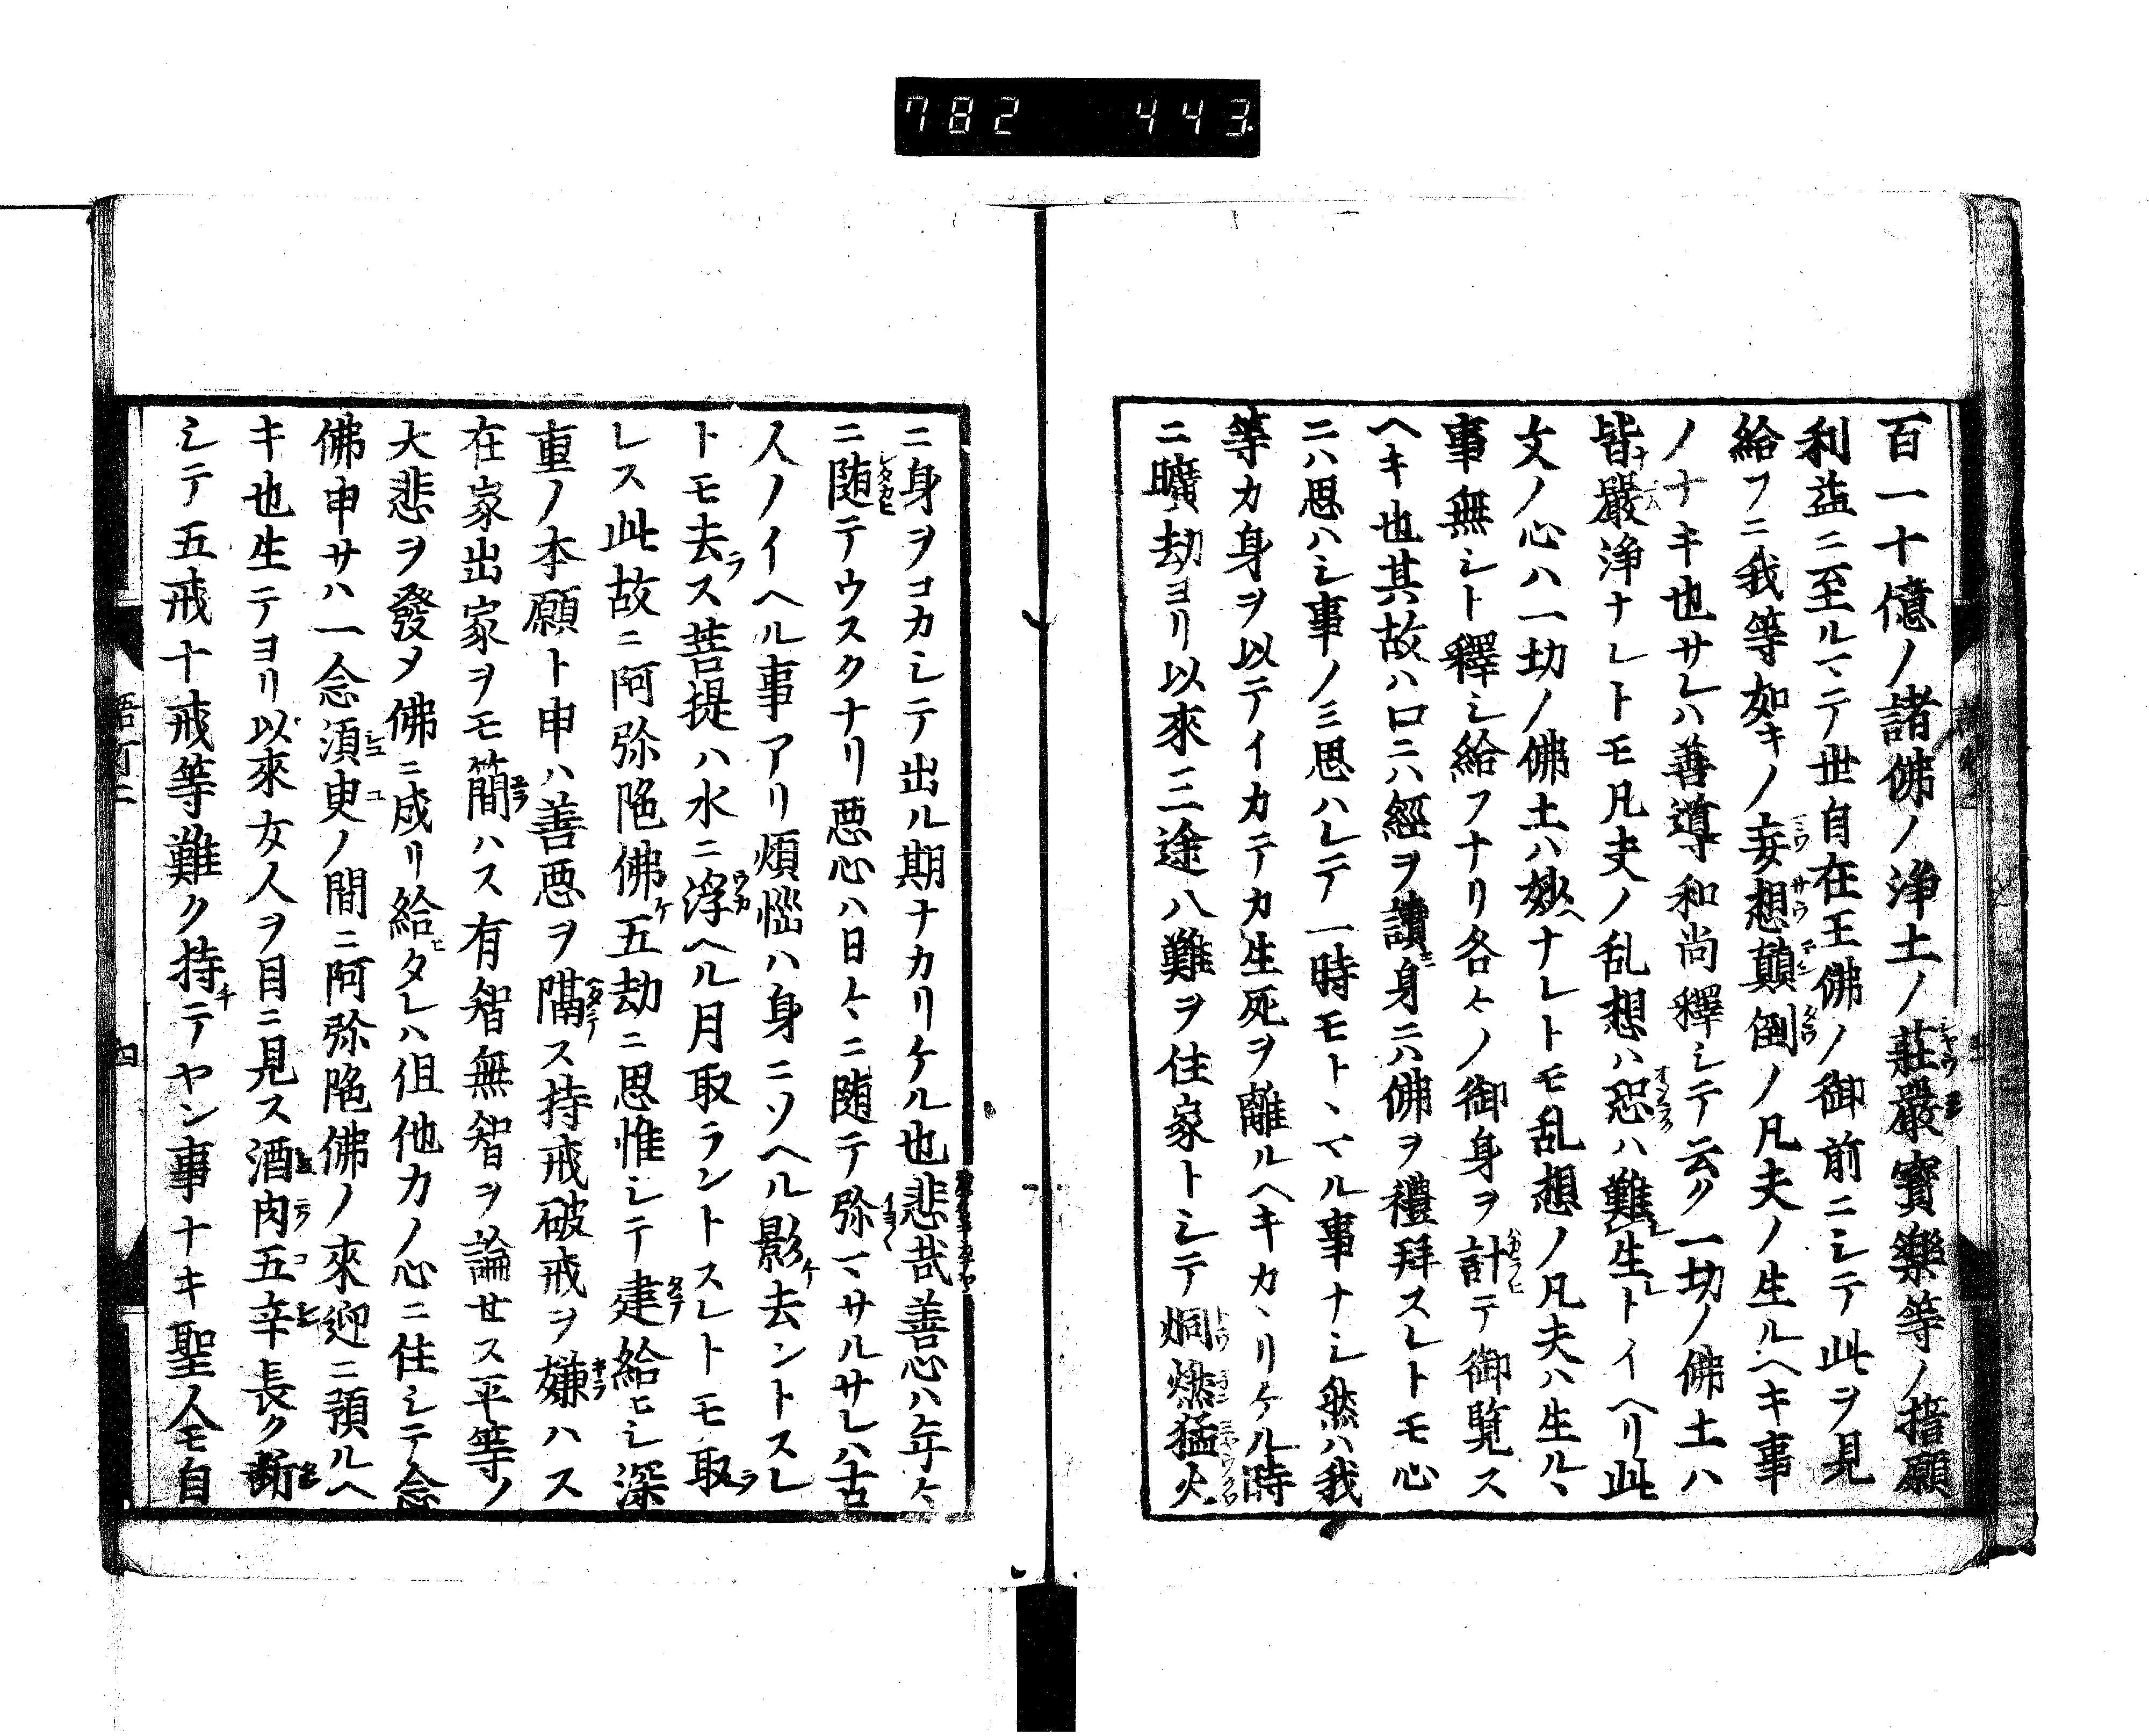 782 443
百一十億ノ諸佛ノ浄土ノ莊嚴寳樂等ノ誓願
利益ニ至ルマテ世自在王佛ノ御前ニシテ此ヲ見
給フニ我等如キノ妄想顛倒ノ凡夫ノ生ルヘキ事
ノナキ也サレハ善導和尚釋シテ云ク一切ノ佛土ハ
皆嚴浄ナレトモ凡夫ノ乱想ハ恐ハ難生トイヘリ此
文ノ心ハ一切ノ佛土ハ妙ナレトモ乱想ノ凡夫ハ生ルヽ
事無シト釋シ給フナリ各々ノ御身ヲ計テ御覧ス
ヘキ也其故ハ口ニハ經ヲ讀身ニハ佛ヲ禮拜スレトモ心
ニハ思ハシ事ノミ思ハレテ一時モトヽマル事ナシ然ハ我
等カ身ヲ以テイカテカ生死ヲ離ルヘキカヽリケル時
ニ曠劫ヨリ以來三途八難ヲ住家トシテ烔燃猛火
ニ身ヲコカシテ出ル期ナカリケル也悲哉善心ハ年々
ニ随テウスクナリ悪心ハ日々ニ随テ弥マサルサレハ古
人ノイヘル事アリ煩惱ハ身ニソヘル影去ントスレ
トモ去ス菩提ハ水ニ浮ヘル月取ラントスレトモ取
レス此故ニ阿弥陀佛五劫ニ思惟シテ建給ヒシ深
重ノ本願ト申ハ善悪ヲ隔ス持戒破戒ヲ嫌ハス
在家出家ヲモ簡ハス有智無智ヲ論セス平等ノ
大悲ヲ發メ佛ニ成リ給タレハ但他力ノ心ニ住シテ念
佛申サハ一念湏臾ノ間ニ阿弥陀佛ノ來迎ニ預ルヘ
キ也生テヨリ以來女人ヲ目ニ見ス酒肉五辛長ク斷
シテ五戒十戒等難ク持テヤン事ナキ聖人モ自
四